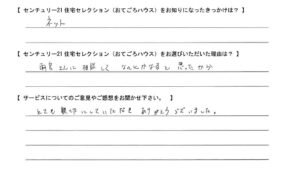 【 センチュリー21 住宅セレクション（おてごろハウス）をお知りになったきっかけは？ 】
ネット
【 センチュリー21 住宅セレクション（おてごろハウス）をお選びいただいた理由は？ 】
さんに相談してなんとかなると思ったから
【 サービスについてのご意見やご感想をお聞かせ下さい。 】
とても親切にしていただきありがとうございました。